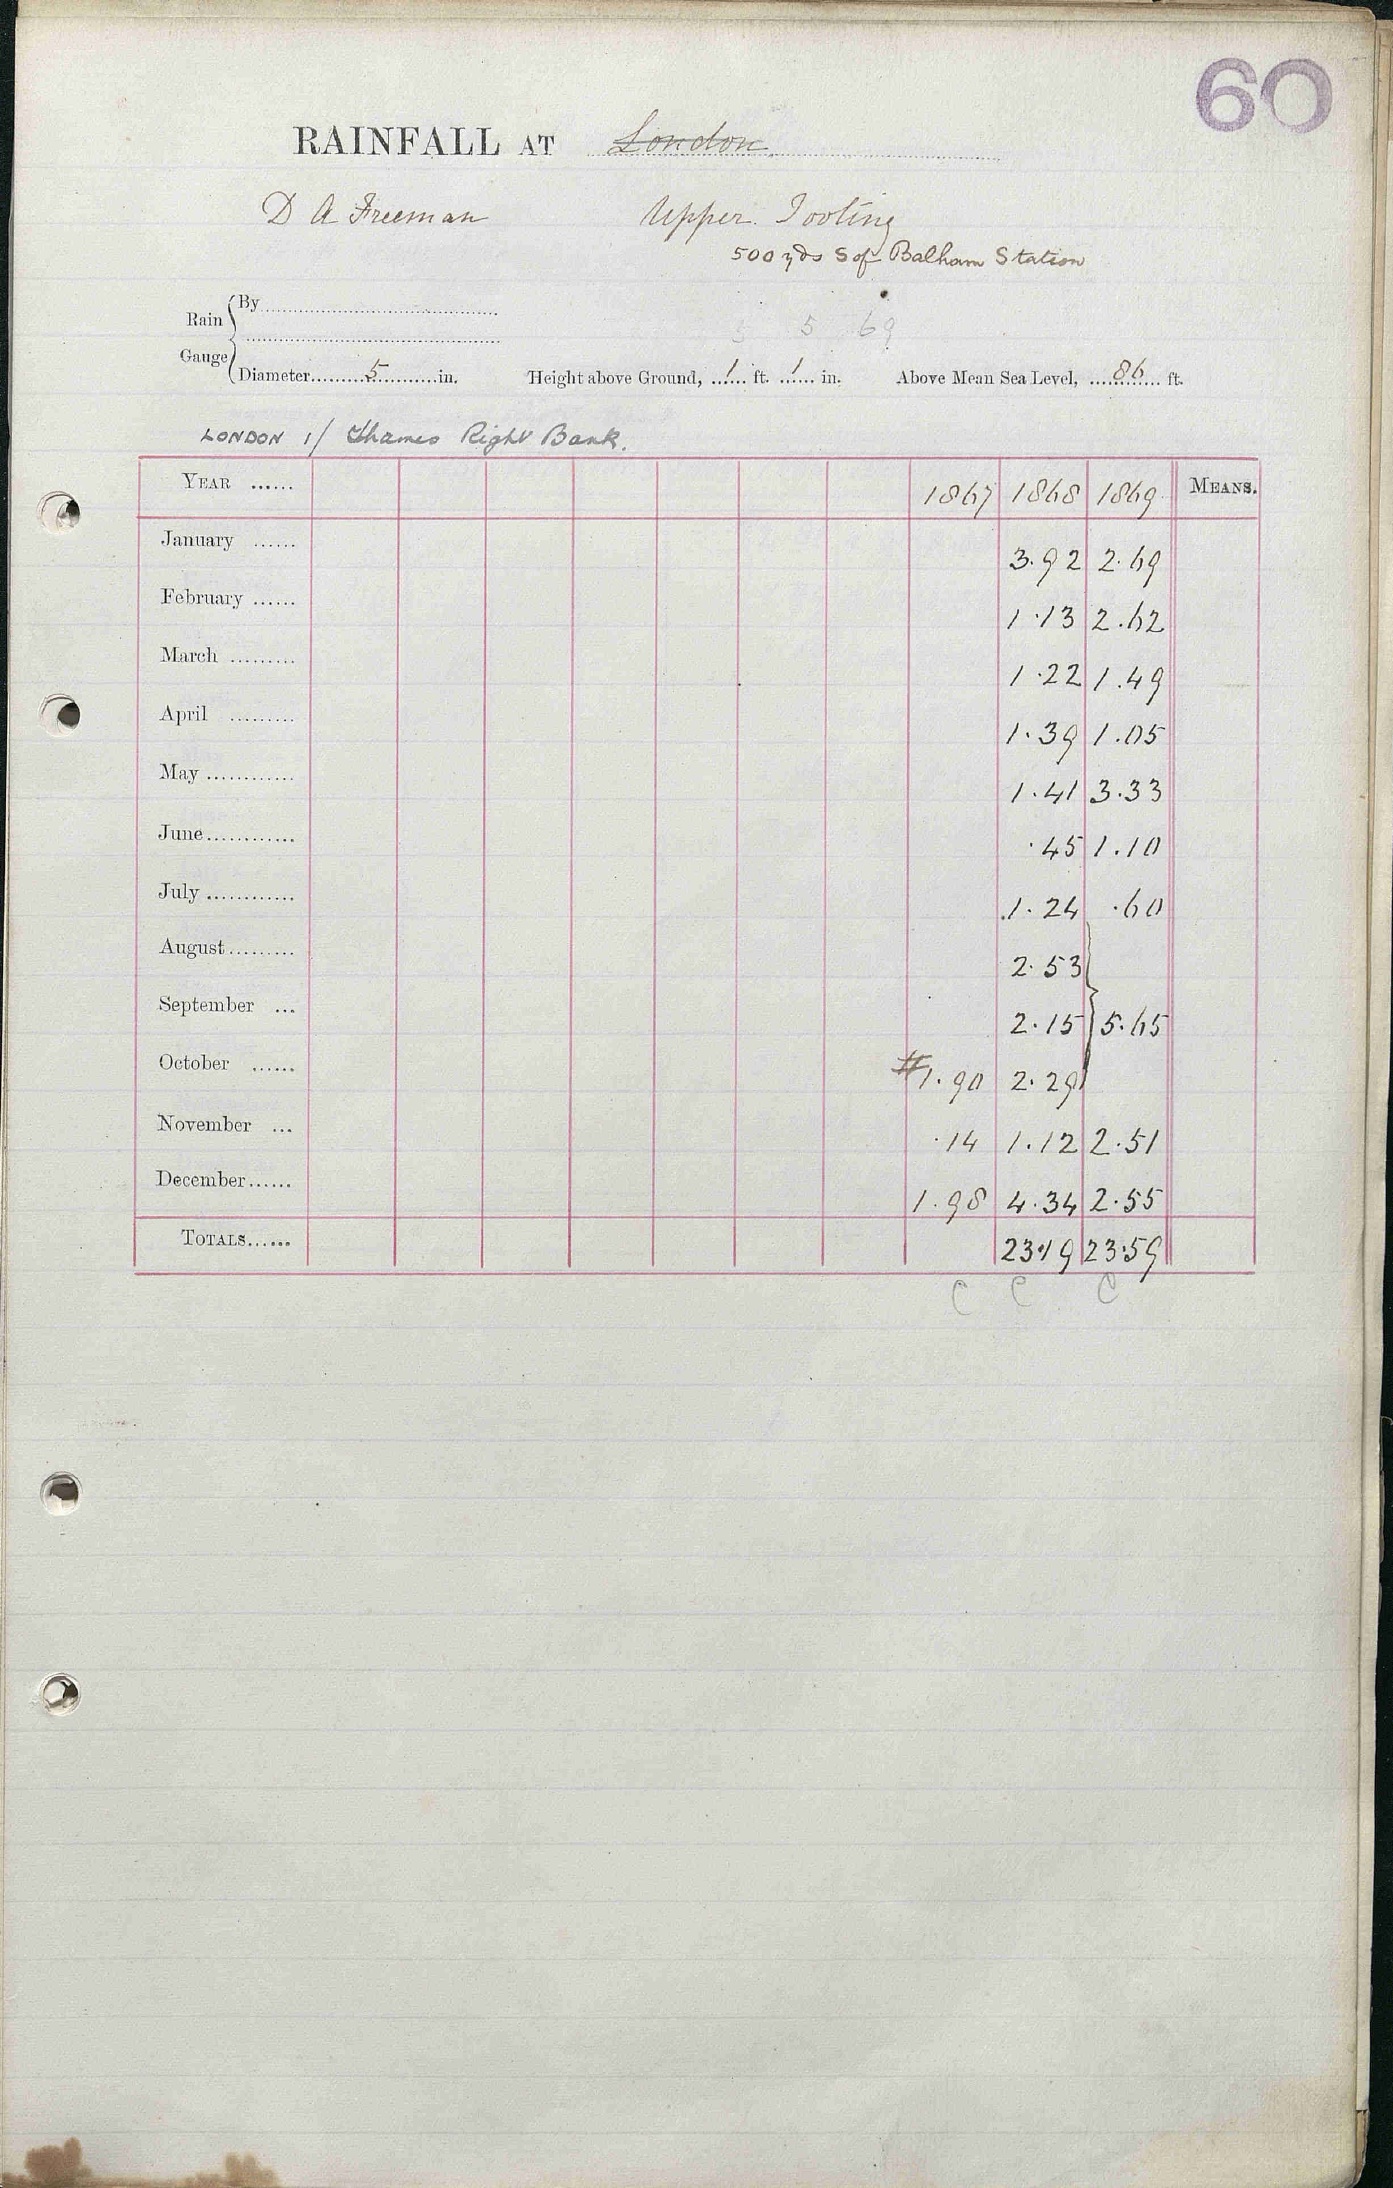 60
RAINFALL AT London
D A Freeman Upper Tooting
500 yds S of Balham Station
Rain Gauge { By
5 5 69
Diameter 5 in. Height above Ground, 1 ft. 1 in. Above Mean Sea Level, 86 ft.
LONDON 1/ Thames Right Bank.
YEAR ...... 1867 1868 1869 MEANS.
January ...... 3.92 2.69
February ...... 1.13 2.62
March ......... 1.22 1.49
April ......... 1.39 1.05
May ............ 1.41 3.33
June ............ .45 1.10
July ............ 1.24 .60
August ......... 2.53
September ... 2.15 } 5.65
October ...... #1.90 2.29
November ... .14 1.12 2.51
December ...... 1.98 4.34 2.55
TOTALS ...... 23.19 23.59
C C C